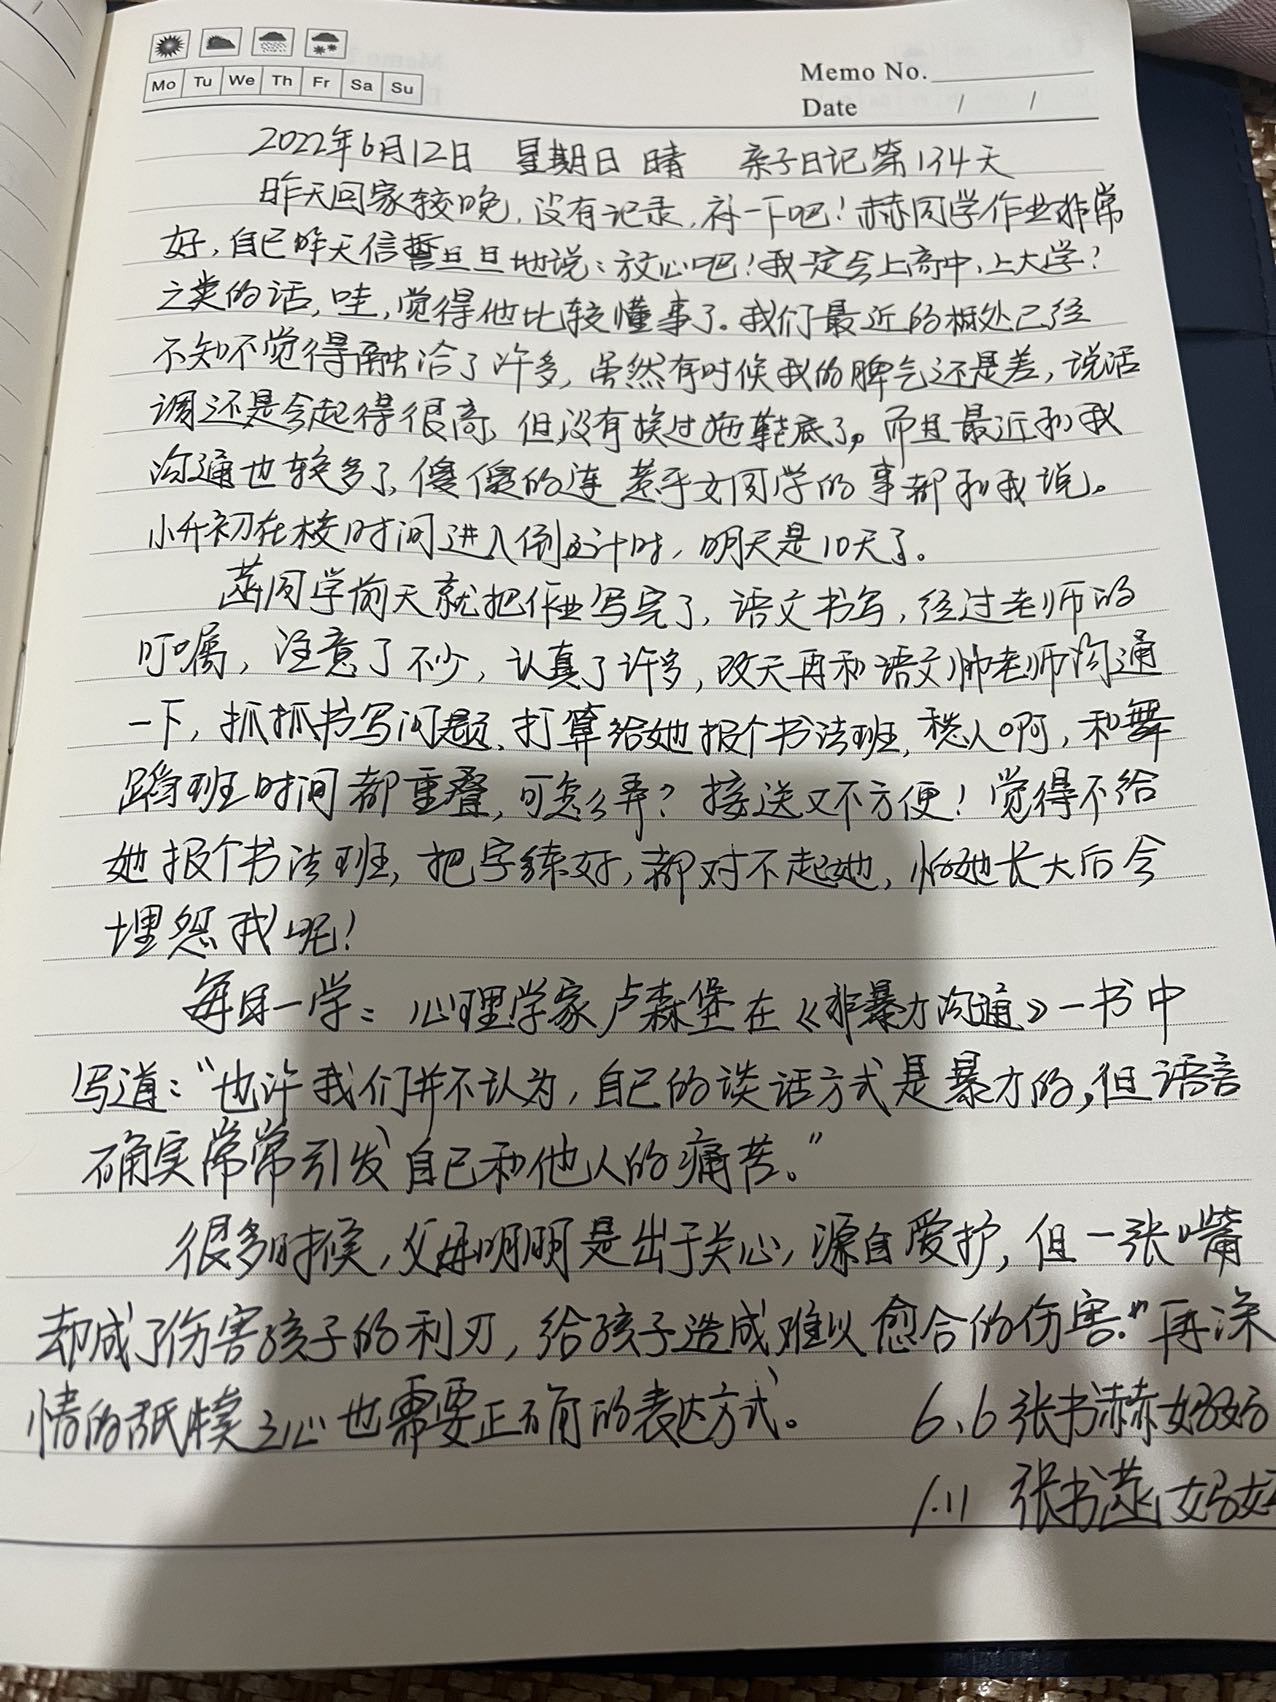 Mo Tu We Th Fr Sa Su
Memo No.
Date / /
2022年6月12日 星期日 晴 亲子日记第134天
昨天回家较晚,没有记录,补一下吧!赫同学作业非常
好,自己昨天信誓旦旦地说:放心吧!我一定会上高中,上大学?
之类的话,哇,觉得他比较懂事了。我们最近的相处已经
不知不觉得融洽了许多,虽然有时候我的脾气还是差,说话
调还是会起得很高,但没有挨过拖鞋底了,而且最近和我
沟通也较多了,傻傻的连惹乎女同学的事都和我说。
小升初在校时间进入倒计时,明天是10天了。
菡同学前天就把作业写完了,语文书写,经过老师的
叮嘱,注意了不少,认真了许多,改天再和语文帅老师沟通
一下,抓抓书写问题,打算给她报个书法班,愁人啊,和舞
蹈班时间都重叠,可怎么弄?接送又不方便!觉得不给
她报个书法班,把字练好,都对不起她,怕她长大后会
埋怨我呢!
每日一学:心理学家卢森堡在《非暴力沟通》一书中
写道:“也许我们并不认为,自己的谈话方式是暴力的,但语言
确实常常引发自己和他人的痛苦。”
很多时候,父母明明是出于关心,源自爱护,但一张嘴
却成了伤害孩子的利刃,给孩子造成难以愈合的伤害.“再深
情的舐犊之心也需要正确的表达方式。 6.6张书赫妈妈
1.11 张书菡妈妈